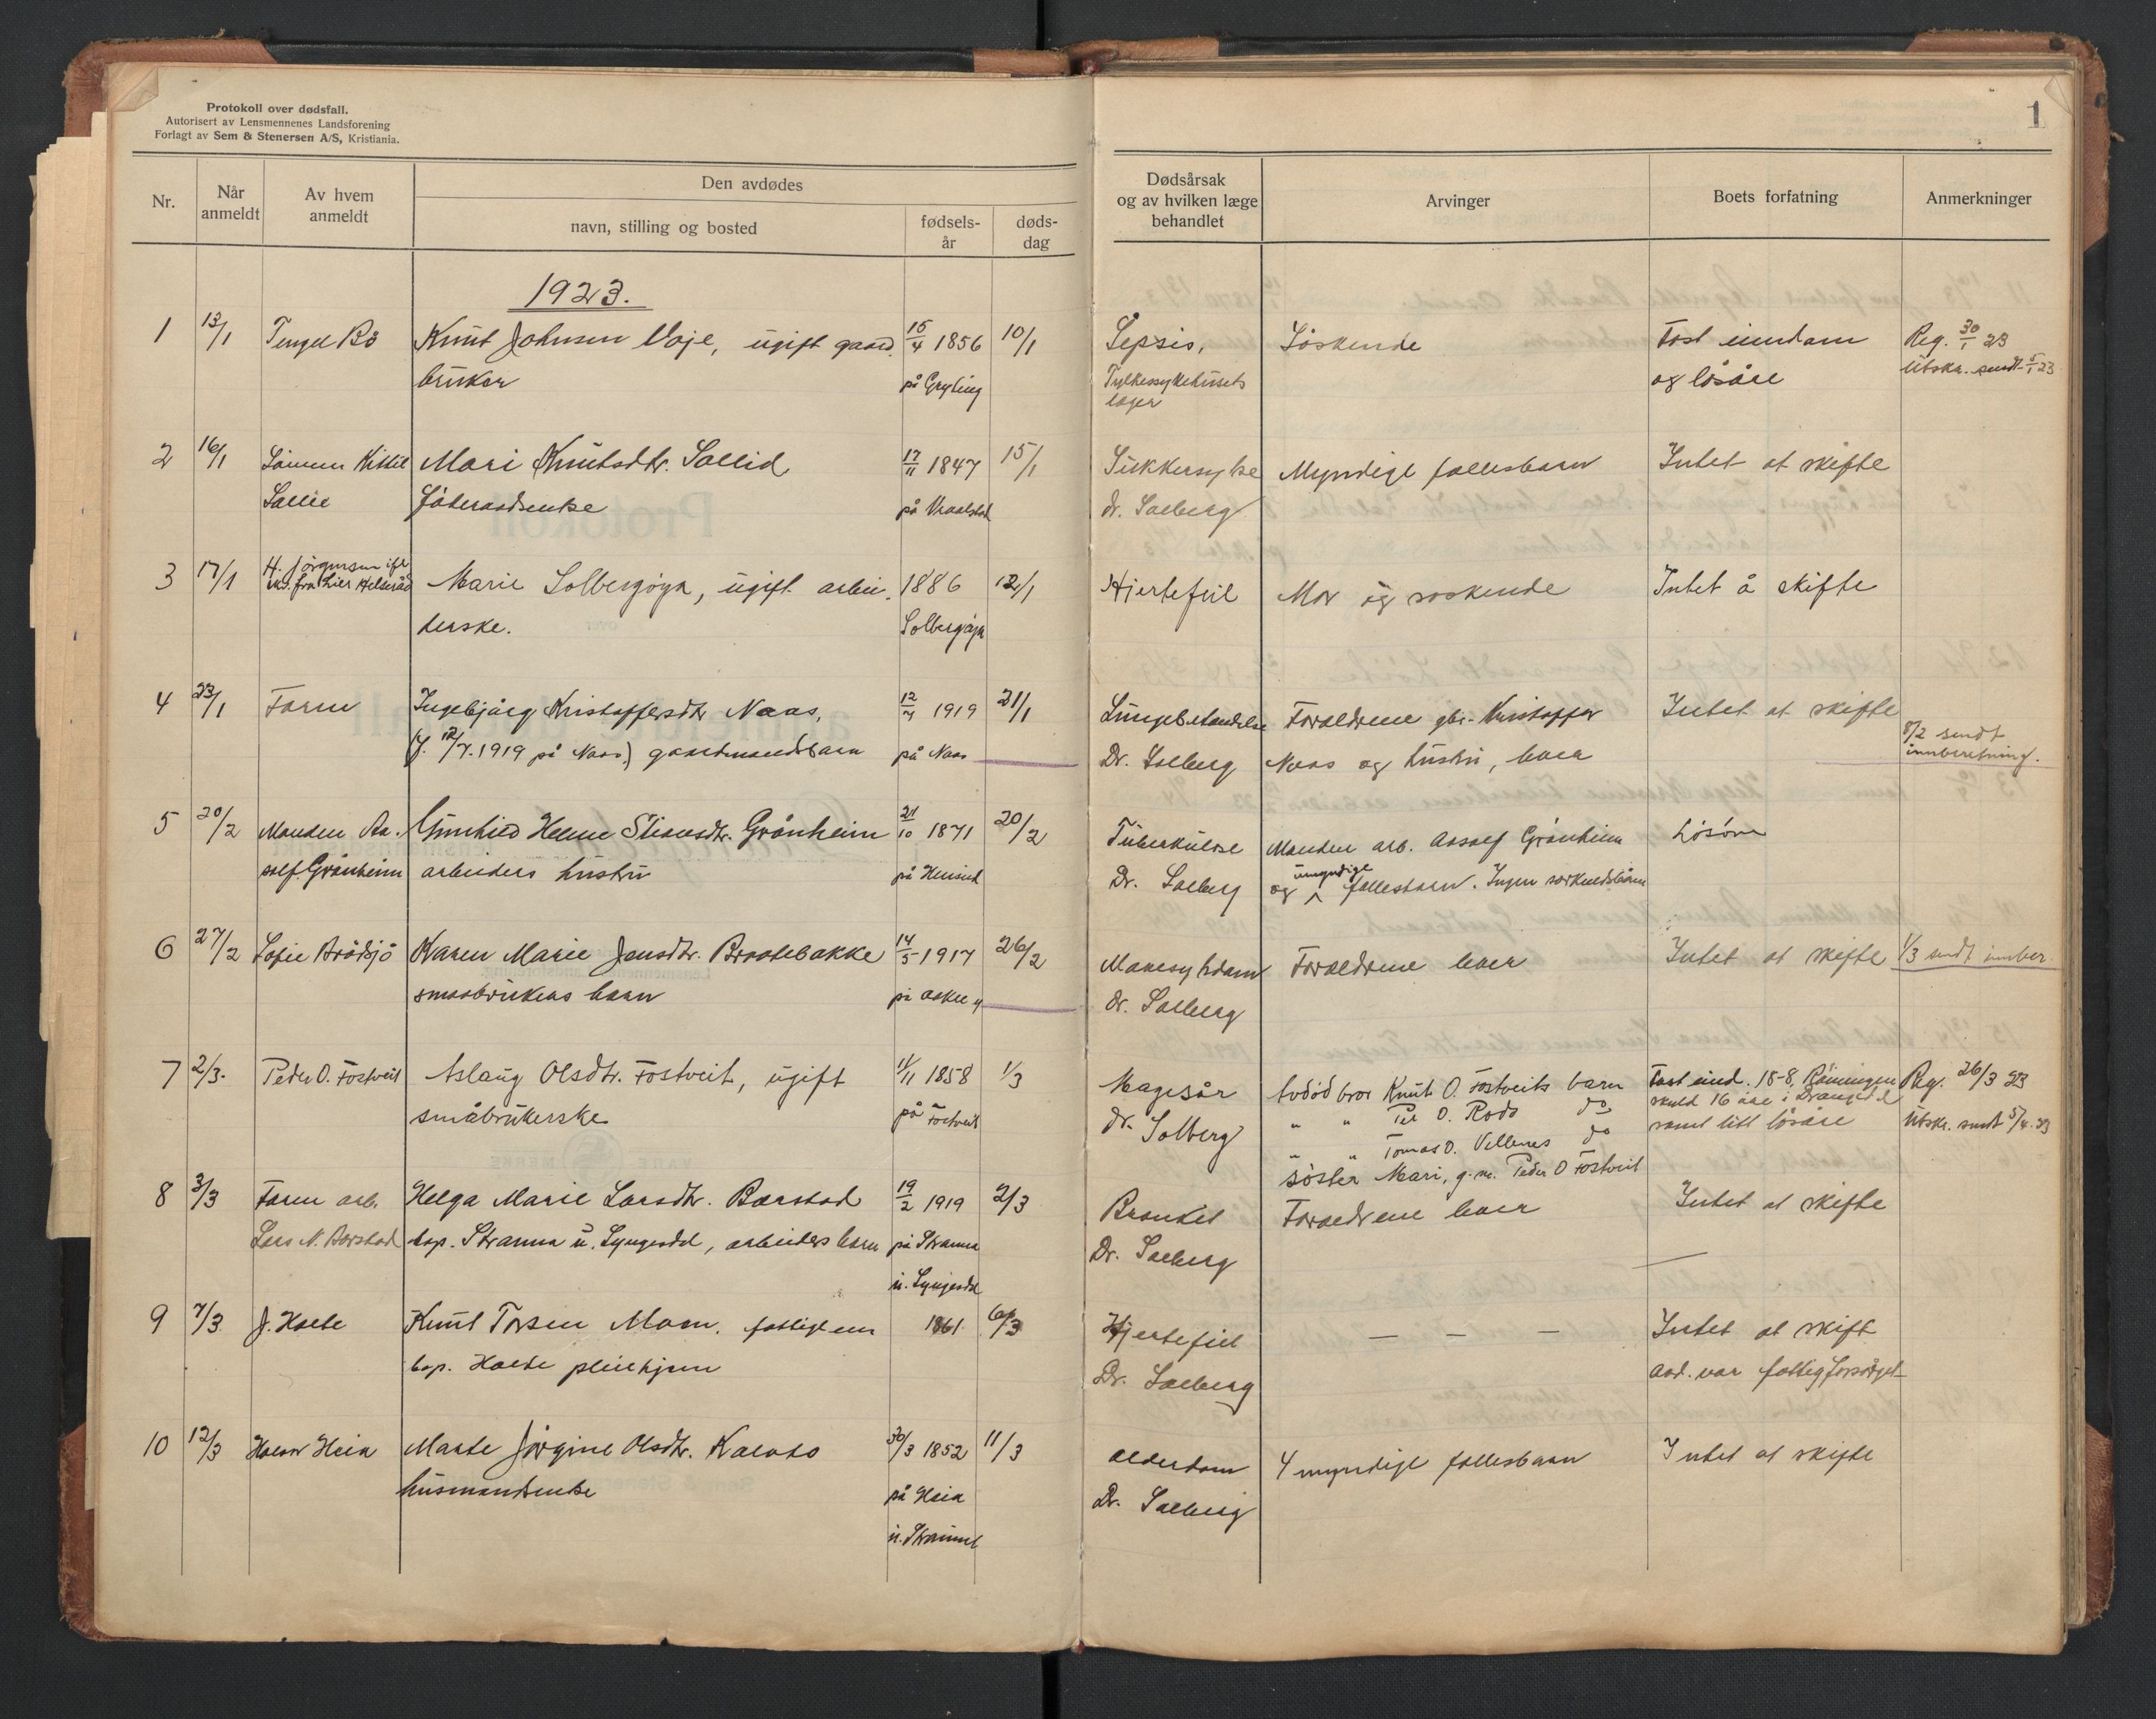 Protokoll over dødsfall.
Autorisert av Lensmennenes Landsforening
Forlagt av Sem & Stenersen A/S, Kristiania.
1
Nr.
Når anmeldt
Av hvem anmeldt
Den avdødes
navn, stilling og bosted
fødsels-år
døds-dag
Dødsårsak og av hvilken læge behandlet
Arvinger
Boets forfatning
Anmerkninger
1923.
1 13/1 Tengel Bö Knut Johnsen Voje, ugift gaard 15/4 1856 10/1 Sepsis, Söskende Fast eiendom Reg. 30/1 23
bruker på Gryting Fylkessykehusets og lösöre Utskr. sendt 5/1 23
læger
2 16/1 Sönnen Kittil Mari Knutsdtr. Sollid 17/11 1847 15/1 Sukkersyke Myndige fællesbarn Intet at skifte
Sollid föderaadsenke på Vraalstad dr. Solberg
3 17/1 H. Jörgensen ifl. Marie Solbergöya, ugift arbei- 1886 12/1 Hjertefeil Mor og söskende Intet å skifte
skr. fra Lier Helseråd derske. Solbergöya
4 23/1 Faren Ingebjörg Kristoffersdtr Naas, 12/7 1919 21/1 Lungebetendelse Forældrene gbr. Kristoffer Intet at skifte
(f. 12/7.1919 på Naas) gaardmandsbarn på Naas Dr. Solberg Naas og hustru, lever 8/2 sendt innberetning.
5 20/2 Manden Aa- Gunhild Helene Stiansdtr. Grönheim 21/10 1871 20/2 Tuberkulose Manden arb. Aasolf Grönheim Lösöre
solf Grönheim arbeiders hustru på Heisund Dr. Solberg og umyndige fællesbarn. Ingen særkuldsbarn
6 27/2 Sofie Brödsjö Karen Marie Jensdtr. Braatebakke 14/5 1917 26/2 Mavesykdom Forældrene lever Intet at skifte 1/3 sendt innber.
smaabrukers barn på Dr. Solberg
7 2/3. Peder O. Föstveit Aslaug Olsdtr. Föstveit, ugift 11/11 1858 1/3 Magesår avdöd bror Knut O. Föstveits barn Fast eiend. 18-8, Röiningen Reg. 26/3 23
småbrukerske på Föstveit dr. Solberg " " Per O. Rödö do skyld 16 öre i Drangedal
" " Tomas O. Vellenes do samt litt lösöre Utskr. sendt 5/4.23
söster Mari, g.m. Peder O Föstveit
8 3/3 Faren arb. Helga Marie Larsdtr. Barstad 19/2 1919 2/3 Bronkit Forældrene lever Intet at skifte
Lars N. Barstad bop. Stranna u. Lyngesdal, arbeiders barn på Stranna Dr. Solberg —
u. Lyngesdal
9 7/3 J. Holte Knut Torsen Moen, fattiglem 1861 6/3 Hjertefeil — — — Intet at skift
bop. Holte pleiehjem Dr. Solberg avd. var fattigforsörget
10 12/3 Halvor Heia Marte Jörgine Olsdtr. 30/3 1852 11/3 Alderdom 4 myndige fællesbarn Intet at skifte
husmandsenke på Heia Dr. Solberg